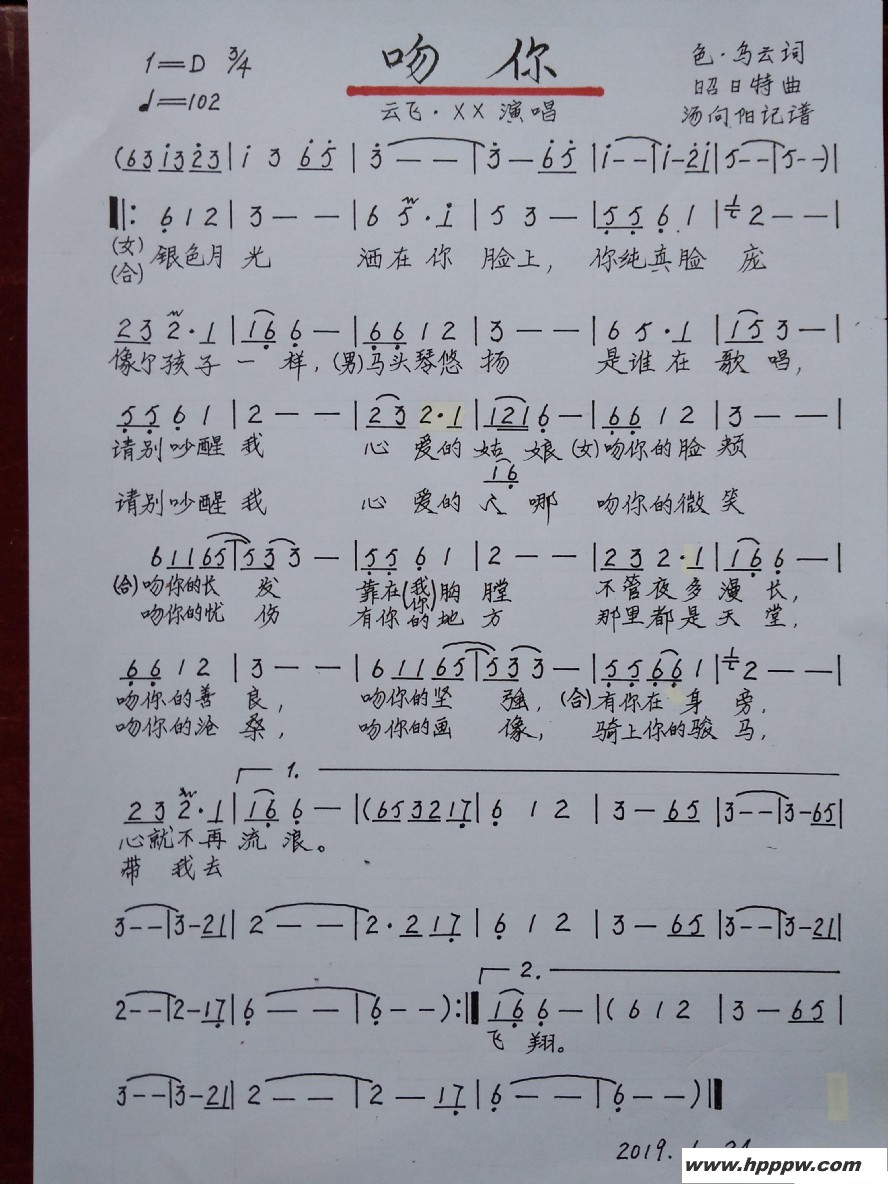 1=D 3/4 吻 你 色·乌云词
♩=102 云飞·XX 演唱 昭日特曲
汤向阳记谱
(6 3 i 3 2̇ 3|i 3 6̇ 5̇|3̇ – –|3̇ – 6̇ 5̇|i – –|i – 2̇ i|5 – –|5 – –)|
‖: 6̣ 1 2|3 – –|6 5·i|5 3 –|5̣ 5̣ 6̣ 1|2 – –|
(女) 银色月 光 洒在你 脸上, 你纯真脸 庞
(合)
2 3 2·1|1 6̣ 6̣ –|6̣ 6̣ 1 2|3 – –|6 5·1|1 5 3 –|
像尔孩子 一 样, (男)马头琴悠 扬 是谁在 歌 唱,
5̣ 5̣ 6̣ 1|2 – –|2 3 2·1|1 2 1 6̣ –|6̣ 6̣ 1 2|3 – –|
请别吵醒 我 心 爱的 姑 娘 (女)吻你的脸 颊
1 6̣
请别吵醒 我 心 爱的 人 哪 吻你的微 笑
6 1 1 6 5|5 3 3 –|5̣ 5̣ 6̣ 1|2 – –|2 3 2·1|1 6̣ 6̣ –|
(合)吻你的长 发 靠在(我你)胸 膛 不管夜多 漫 长,
吻你的忧 伤 有你的地 方 那里都是 天 堂,
6̣ 6̣ 1 2|3 – –|6 1 1 6 5|5 3 3 –|5̣ 5̣ 6̣ 6̣ 1|2 – –|
吻你的善 良, 吻你的坚 强, (合)有你在 身 旁,
吻你的沧 桑, 吻你的画 像, 骑上你的骏 马,
1.
2 3 2·1|1 6̣ 6̣ –|(6 5 3 2 1 7̣|6̣ 1 2|3 – 6 5|3 – –|3 – 6 5|
心就不再 流 浪。
带 我去
3 – –|3 – 2 1|2 – –|2·2 1 7̣|6̣ 1 2|3 – 6 5|3 – –|3 – 2 1|
2.
2 – –|2 – 1 7̣|6̣ – –|6̣ – –):‖1 6̣ 6̣ –|(6 1 2|3 – 6 5|
飞 翔。
3 – –|3 – 2 1|2 – –|2 – 1 7̣|6̣ – –|6̣ – –)‖
2019.
www.hpppw.com